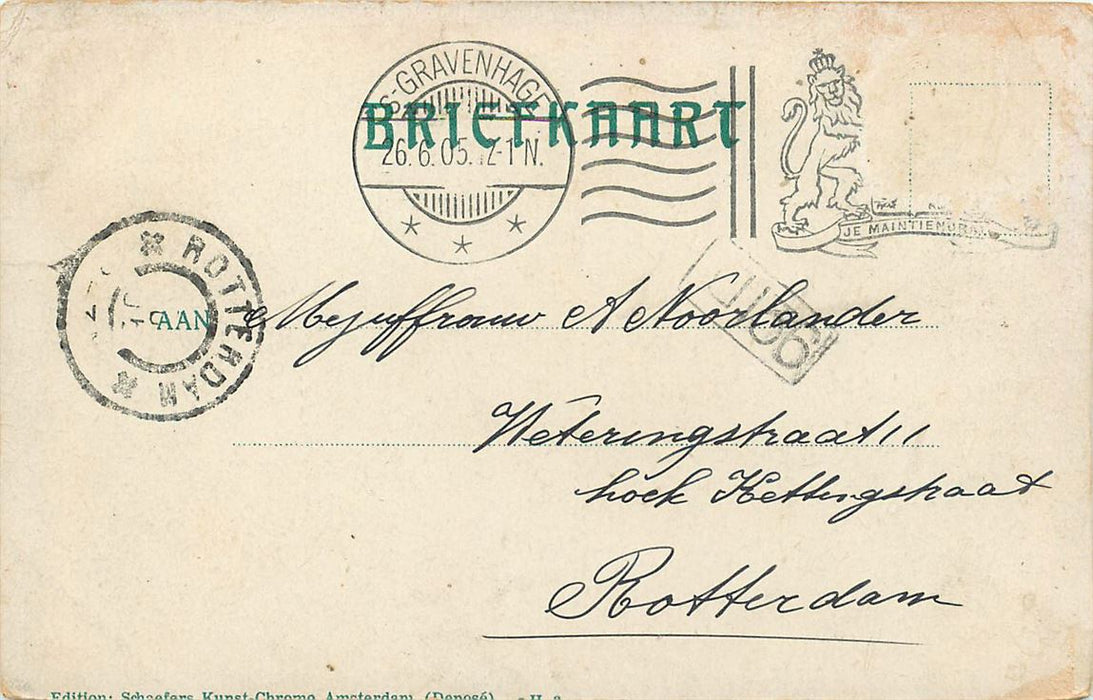 'S-GRAVENHAGE
BRIEFKAART
26.6.05. 12-1 N.
JE MAINTIENDRAI
ROTTERDAM
AAN Mejuffrouw A Noorlander
Weteringstraat 11
hoek Kettingstraat
Rotterdam
Edition: Schaefers Kunst-Chromo, Amsterdam. (Deposé)